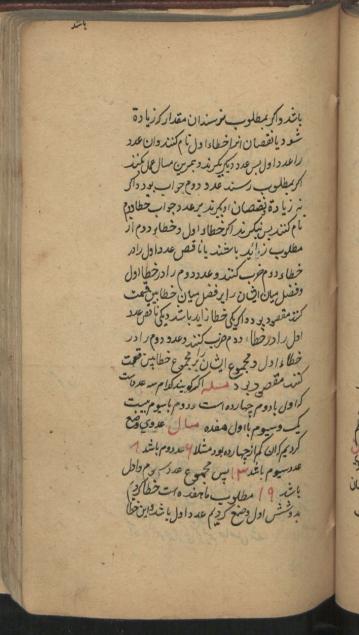 باشد
باشد و اگر بمطلوب نرسند ان مقدار که زیادة
شود یا نقصان انرا خطاء اول نام کنند و ان عدد
را عدد اول پس عدد دیکر بکیرند و بهمین مثال عمل کنند
اکر بمطلوب رسند عدد دوم جواب بود و اکر
نه زیادة نقصان او بکیرند بر عدد جواب خطا دوم
نام کنند پس بنکرند اکر خطاء اول و خطاء دوم از
مطلوب زاید باشند یا ناقص عدد اول را در
خطاء دوم ضرب کنند و عدد دوم را در خطا اول
و فضل میان ایشان را بر فضل میان خطاین قسمت
کنند مقصود بود و اکر یکی خطا زاید باشد و یکی ناقص عدد
اول را در خطاء دوم ضرب کنند و عدد دوم را در
خطاء اول و مجموع ایشان را بر مجموع خطاین قسمت
کنند مقصود بود مسله اکر کویند کدام سه عدد است
که اول با دوم چهارده است و دوم با سیوم بیست
یک و سیوم با اول هفده مثال عددی وضع
کردیم که ان کم از چهارده بود مثلا ۶ عدد دوم باشد ۸
عدد سیوم باشد ۱۳ پس مجموع عدد سیوم و اول
باشد ۱۹ مطلوب ما هفده است خطا کردیم
بدو شش اول وضع کردیم عدد اول باشد و این خطا